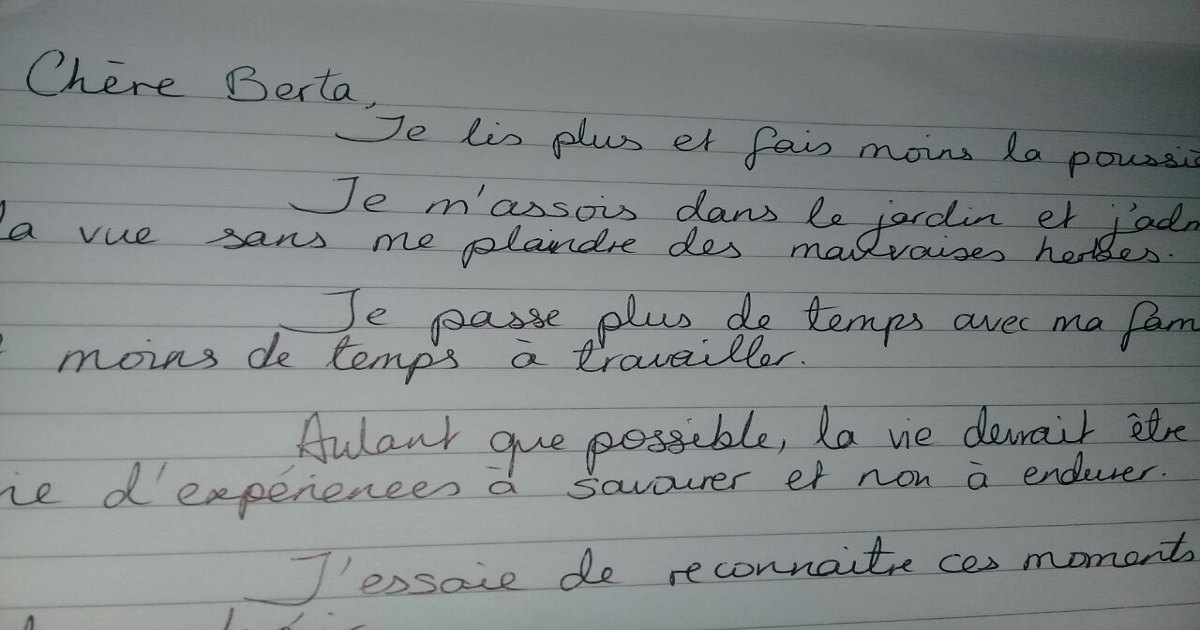 Chère Berta,
Je lis plus et fais moins la poussiè
Je m'assois dans le jardin et j'adm
la vue sans me plaindre des mauvaises herbes.
Je passe plus de temps avec ma fam
moins de temps à travailler.
Autant que possible, la vie devrait être
ie d'expériences à savourer et non à endurer.
J'essaie de reconnaitre ces moments